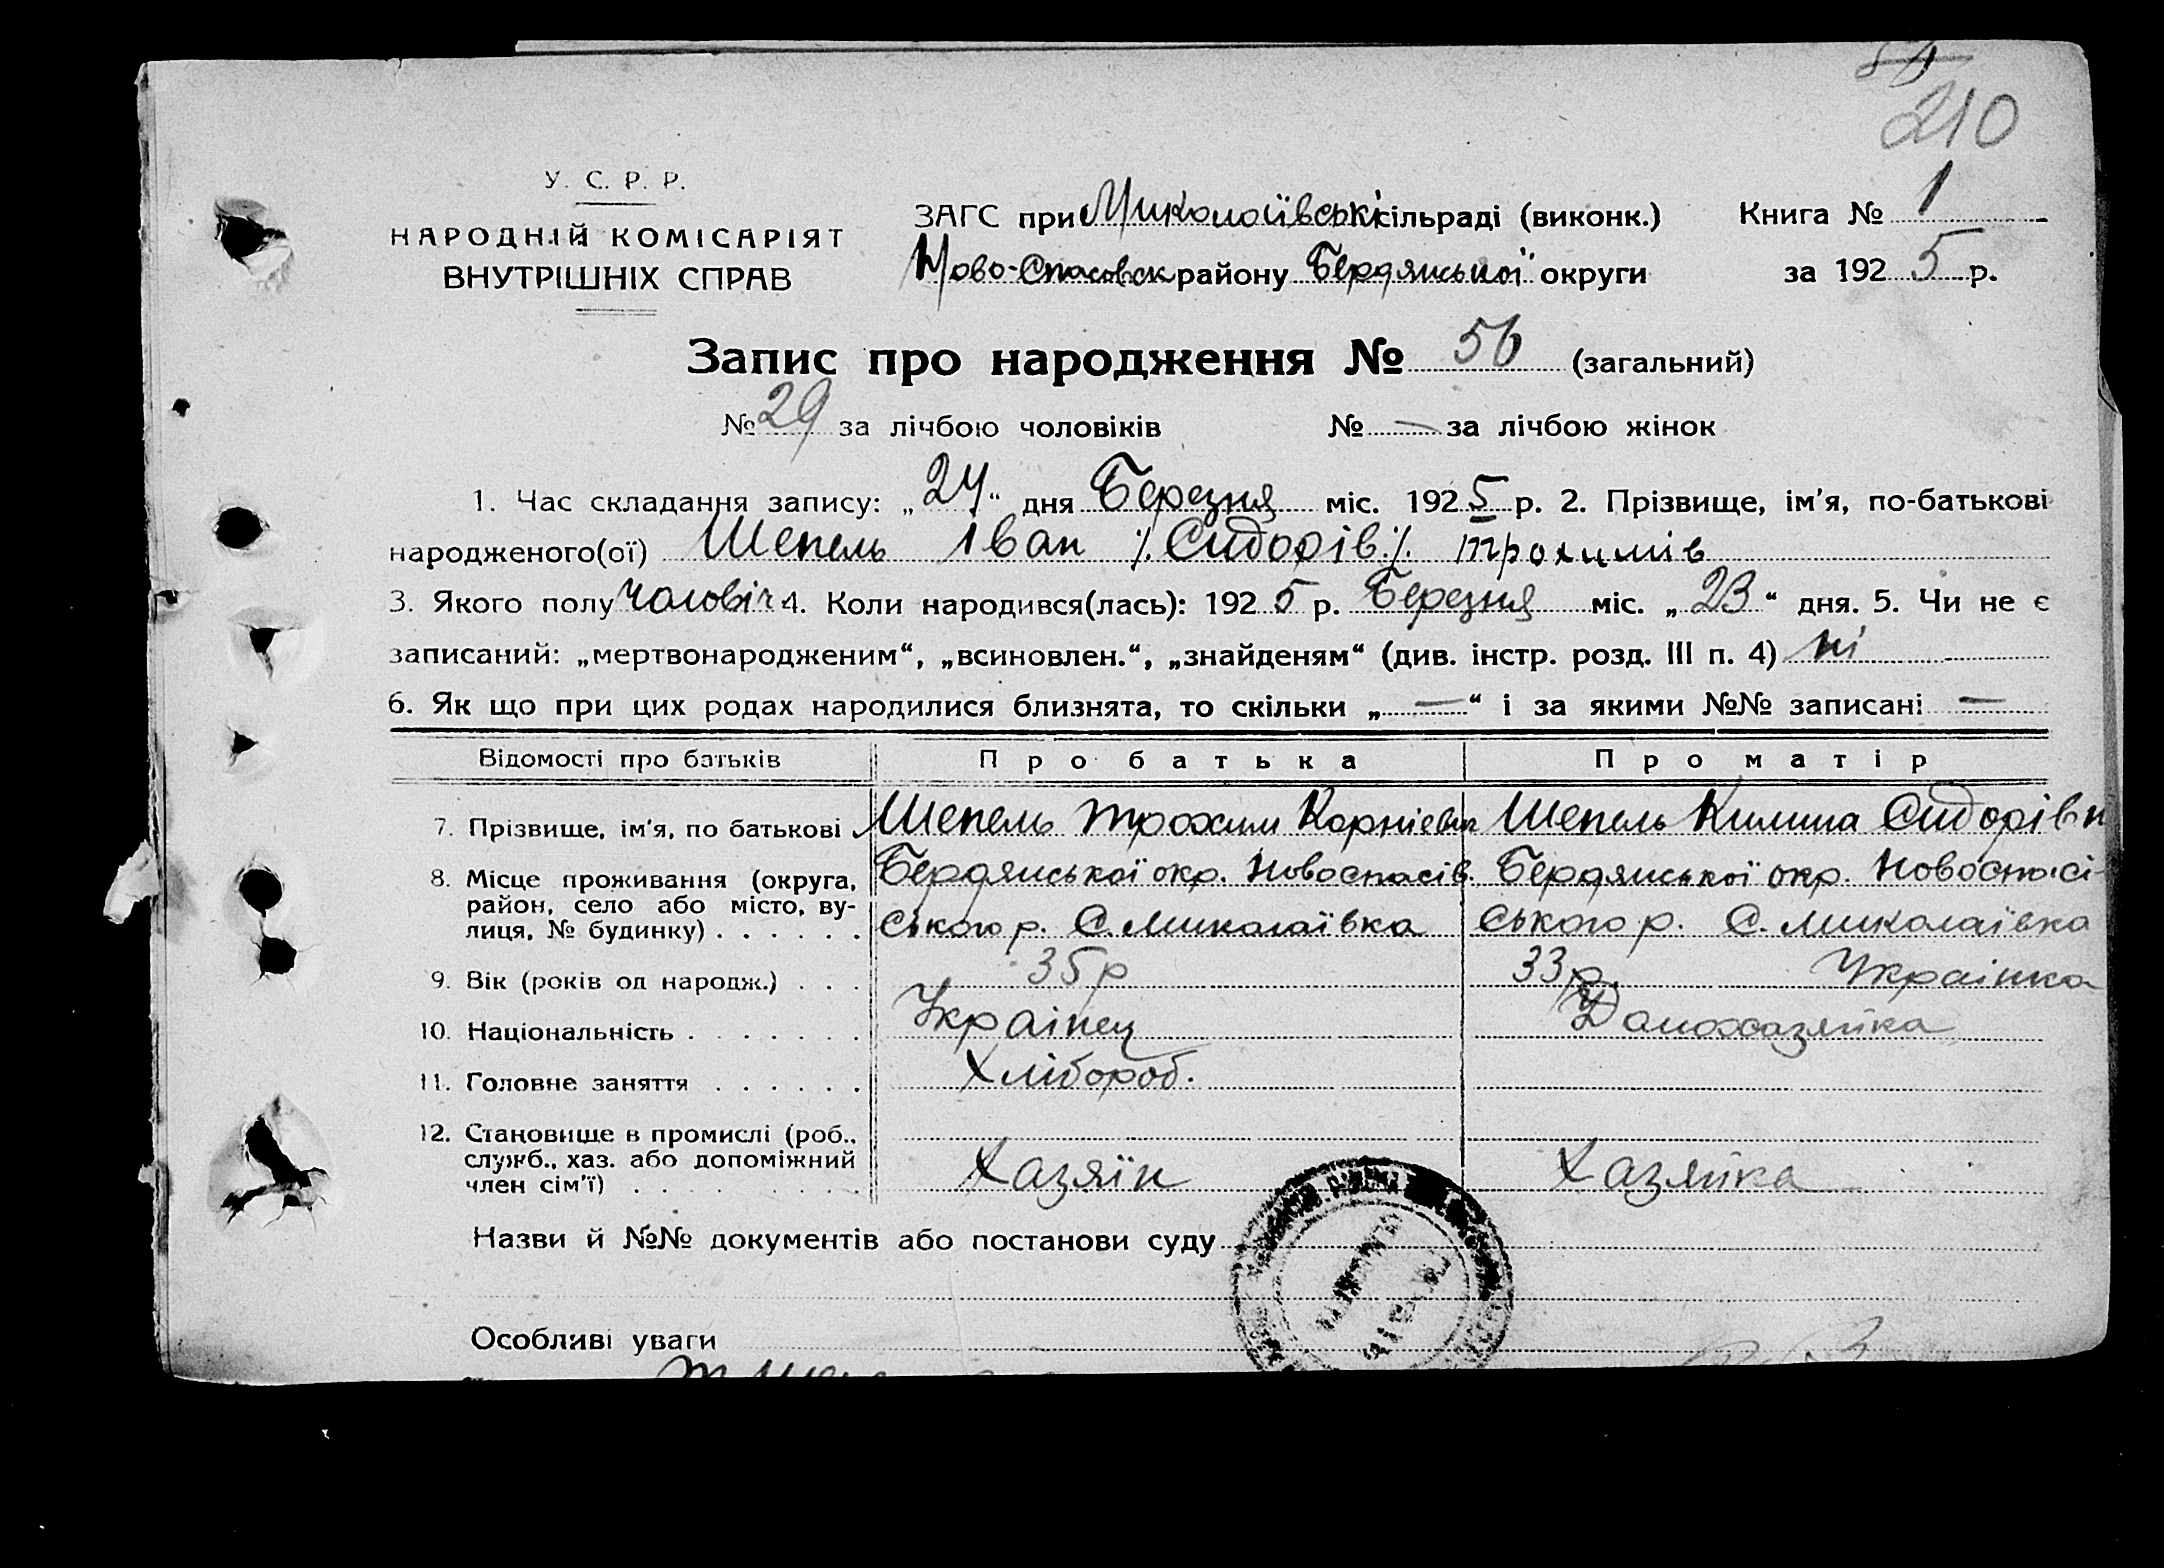 210
У. С. Р. Р.
НАРОДНІЙ КОМІСАРІЯТ
ВНУТРІШНІХ СПРАВ
ЗАГС при Миколаївські сільраді (виконк.) Книга № 1
Ново-Спасовск району Бердянської округи за 1925 р.
Запис про народження № 56 (загальний)
№ 29 за лічбою чоловіків № — за лічбою жінок
1. Час складання запису: „24“ дня Березня міс. 1925 р. 2. Прізвище, ім'я, по-батькові
народженого(ої) Шепель Іван ./. Сидорів ./. Трохимів
3. Якого полу чоловіч 4. Коли народився(лась): 1925 р. Березня міс. „23“ дня. 5. Чи не є
записаний: „мертвонародженим“, „всиновлен.“, „знайденям“ (див. інстр. розд. III п. 4) ні
6. Як що при цих родах народилися близнята, то скільки „—“ і за якими №№ записані —
Відомості про батьків Про батька Про матір
7. Прізвище, ім'я, по батькові Шепель Трохим Корнієвич Шепель Килина Сидорівн
8. Місце проживання (округа, Бердянської окр. Новоспасів. Бердянської окр. Новоспасі-
район, село або місто, ву-
лиця, № будинку) . . . . . . ського р. С. Миколаївка ського р. С. Миколаївка
9. Вік (років од народж.) . . . 35 р 33 р. Українка
10. Національність . . . . . . . Українец Домохазяйка
11. Головне заняття . . . . . . Хлібороб.
12. Становище в промислі (роб.,
служб., хаз. або допоміжний
член сім'ї) . . . . . . . . Хазяїн Хазяйка
Назви й №№ документів або постанови суду
Особливі уваги